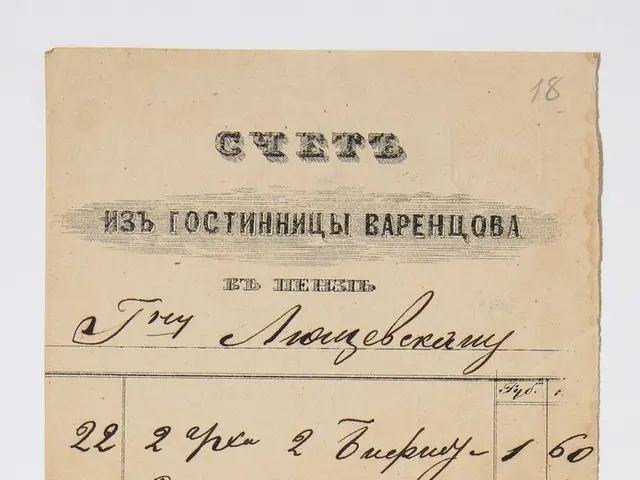 18
СЧЕТЪ
ИЗЪ ГОСТИННИЦЫ ВАРЕНЦОВА
ВЪ ПЕНЗѢ
Гну Лющевскому
Руб.
22 2 2 1 60